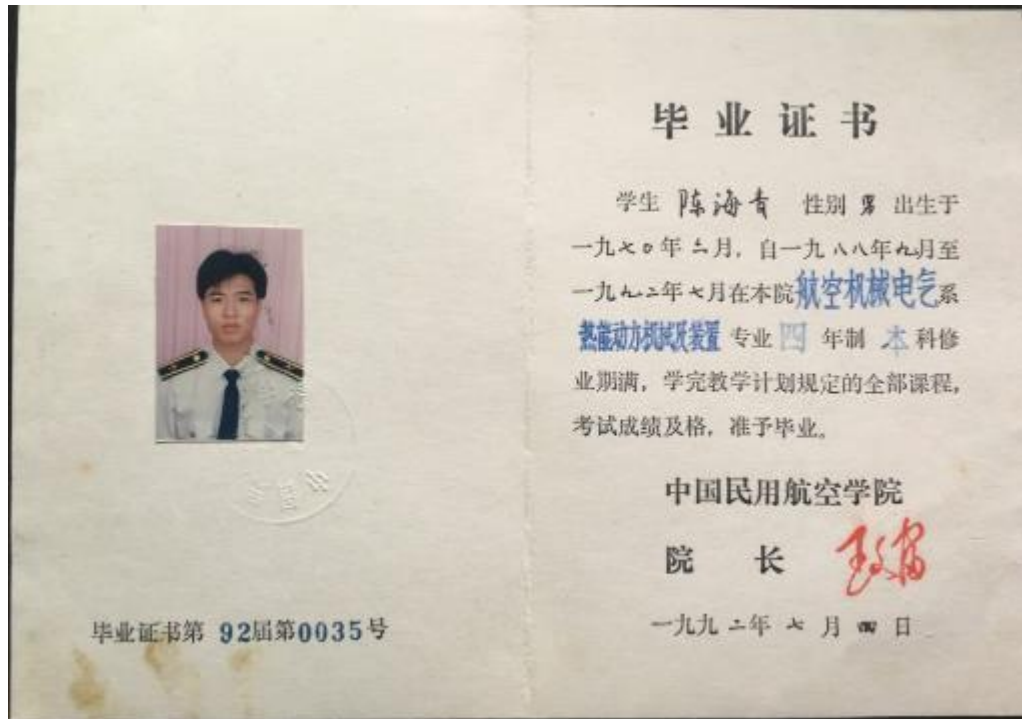 毕业证书第 92届第0035号
毕业证书
学生 陈海青 性别 男 出生于
一九七0年二月,自一九八八年九月至
一九九二年七月在本院航空机械电气系
热能动力机械及装置 专业 四 年制 本 科修
业期满,学完教学计划规定的全部课程,
考试成绩及格,准予毕业。
中国民用航空学院
院 长
一九九二年 七 月 四 日